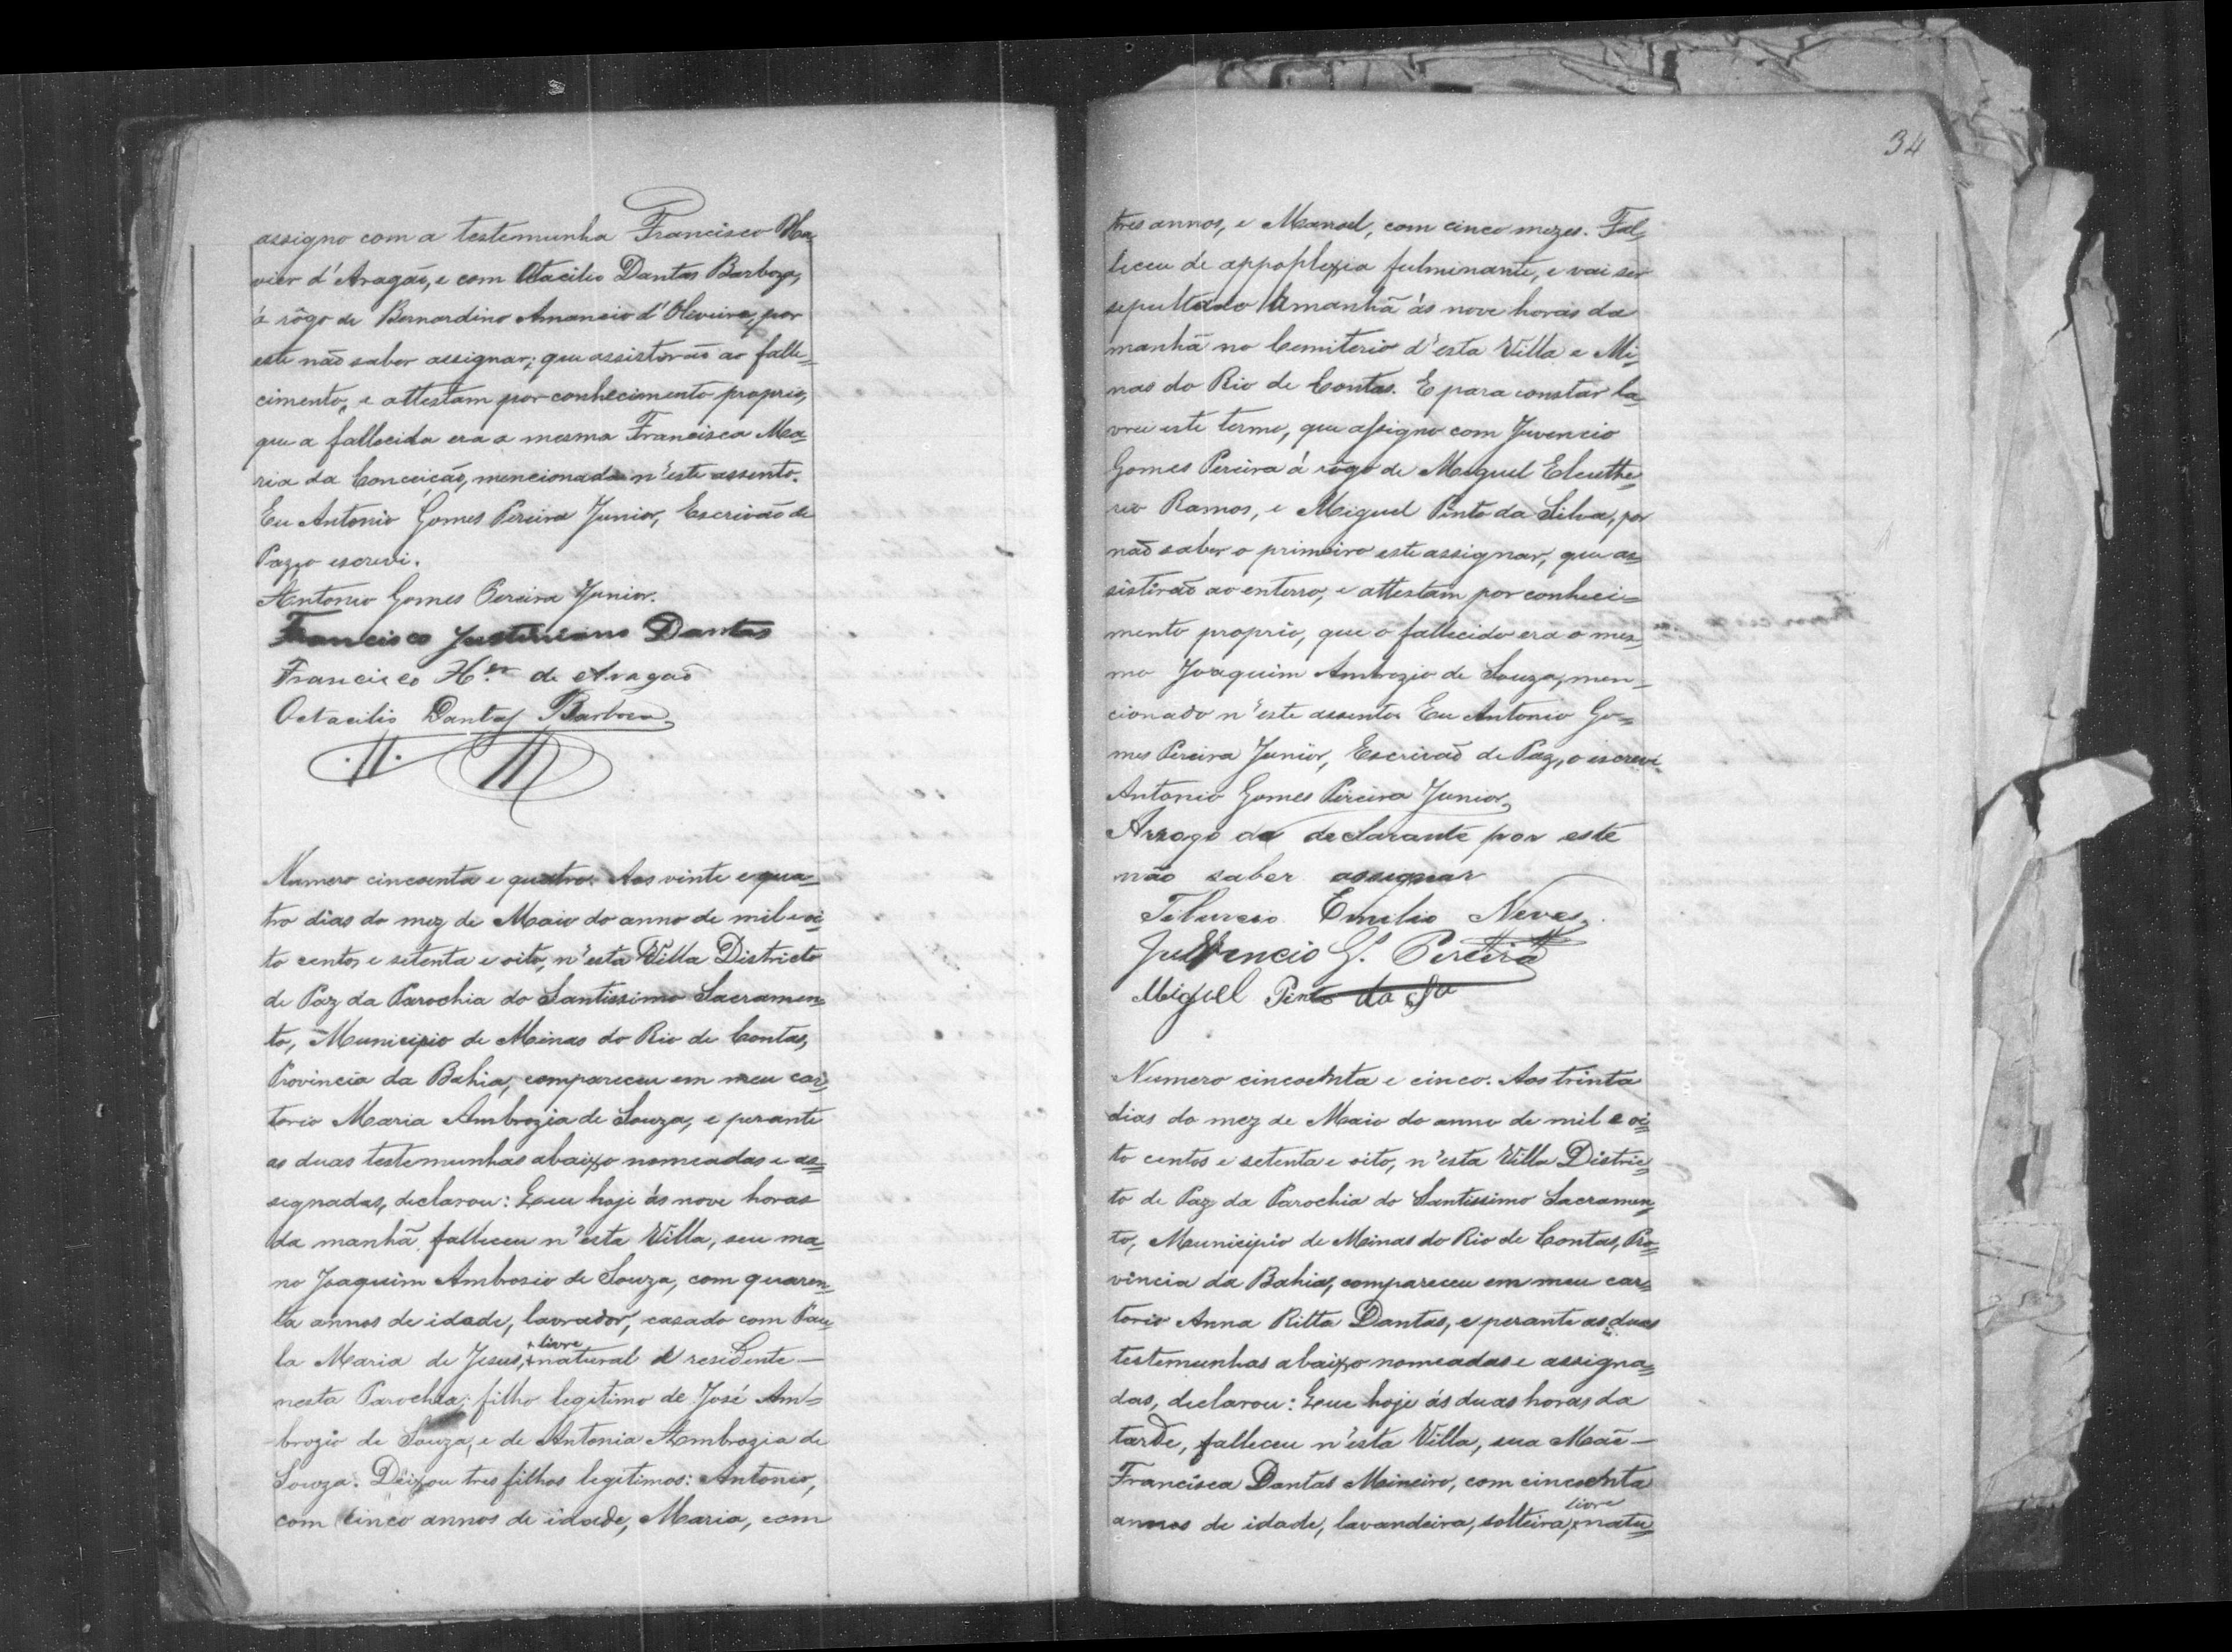 assigno com a testemunha Francisco Xa-
vier d'Aragão, e com Otacilio Dantas Barboza,
á rôgo de Bernardino Amancio d'Oliveira, por
este não saber assignar; que assistirão ao falle=
cimento, e attestam por conhecimento proprio,
que a fallecida era a mesma Francisca Ma=
ria da Conceição, mencionada n'este assento.
Eu Antonio Gomes Pereira Junior, Escrivão de
Paz, o escrevi.
Antonio Gomes Pereira Junior.
Francisco Justiniano Dantas
Francisco X.er de Aragaõ
Octacilio Dantas Barboza
Numero cincoenta e quatro. Aos vinte e qua=
tro dias do mez de Maio do anno de mil e oi=
to centos e setenta e oito, n'esta Villa Districto
de Paz da Parochia do Santissimo Sacramen=
to, Municipio de Minas do Rio de Contas,
Provincia da Bahia, compareceu em meu car=
torio Maria Ambrozia de Souza, e perante
as duas testemunhas abaixo nomeadas e as=
segnadas, declarou: Que hoje ás nove horas
da manhã falleceu n'esta Villa, seu ma=
no Joaquim Ambrosio de Souza, com quaren=
ta annos de idade, lavrador, casado com Pau=
la Maria de Jesus, + livre + natural e residente—
nesta Parochia; filho legitimo de José Am=
brozio de Souza, e de Antonia Ambrozia de
Souza. Deixou tres filhos legitimos: Antonio,
com cinco annos de idade, Maria, com
34
tres annos, e Manoel, com cinco mezes. Fal=
leceu de appoplexia fulminante, e vai ser
sepultado amanhã ás nove horas da
manhã no Cemiterio d'esta Villa e Mi=
nas do Rio de Contas. E para constar la=
vrei este termo, que assigno com Juvencio
Gomes Pereira á rôgo de Miguel Eleuthe=
rio Ramos, e Miguel Pinto da Silva, por
não saber o primeiro este assignar, que as=
sistirão ao enterro, e attestam por conheci=
mento proprio, que o fallecido era o mes=
mo Joaquim Ambrozio de Souza, men=
cionado n'este assento. Eu Antonio Go=
mes Pereira Junior, Escrivão de Paz, o escrevi.
Antonio Gomes Pereira Junior.
Arrogo da declarante por este
não saber assignar
Tiburcio Emilio Neves.
Juvencio G. Pereira
Miguel Pinto da Sa
Numero cincoenta e cinco. Aos trinta
dias do mez de Maio do anno de mil e oi=
to centos e setenta e oito, n'esta Villa Distric=
to de Paz da Parochia do Santissimo Sacramen=
to, Municipio de Minas do Rio de Contas, Pro=
vincia da Bahia, compareceu em meu car=
torio Anna Ritta Dantas, e perante as duas
testemunhas abaixo nomeadas e assigna=
das, declarou: Que hoje ás duas horas da
tarde, falleceu n'esta Villa, sua Mãe—
Francisca Dantas Mineiro, com cincoenta
annos de idade, lavandeira, solteira, livre natu=